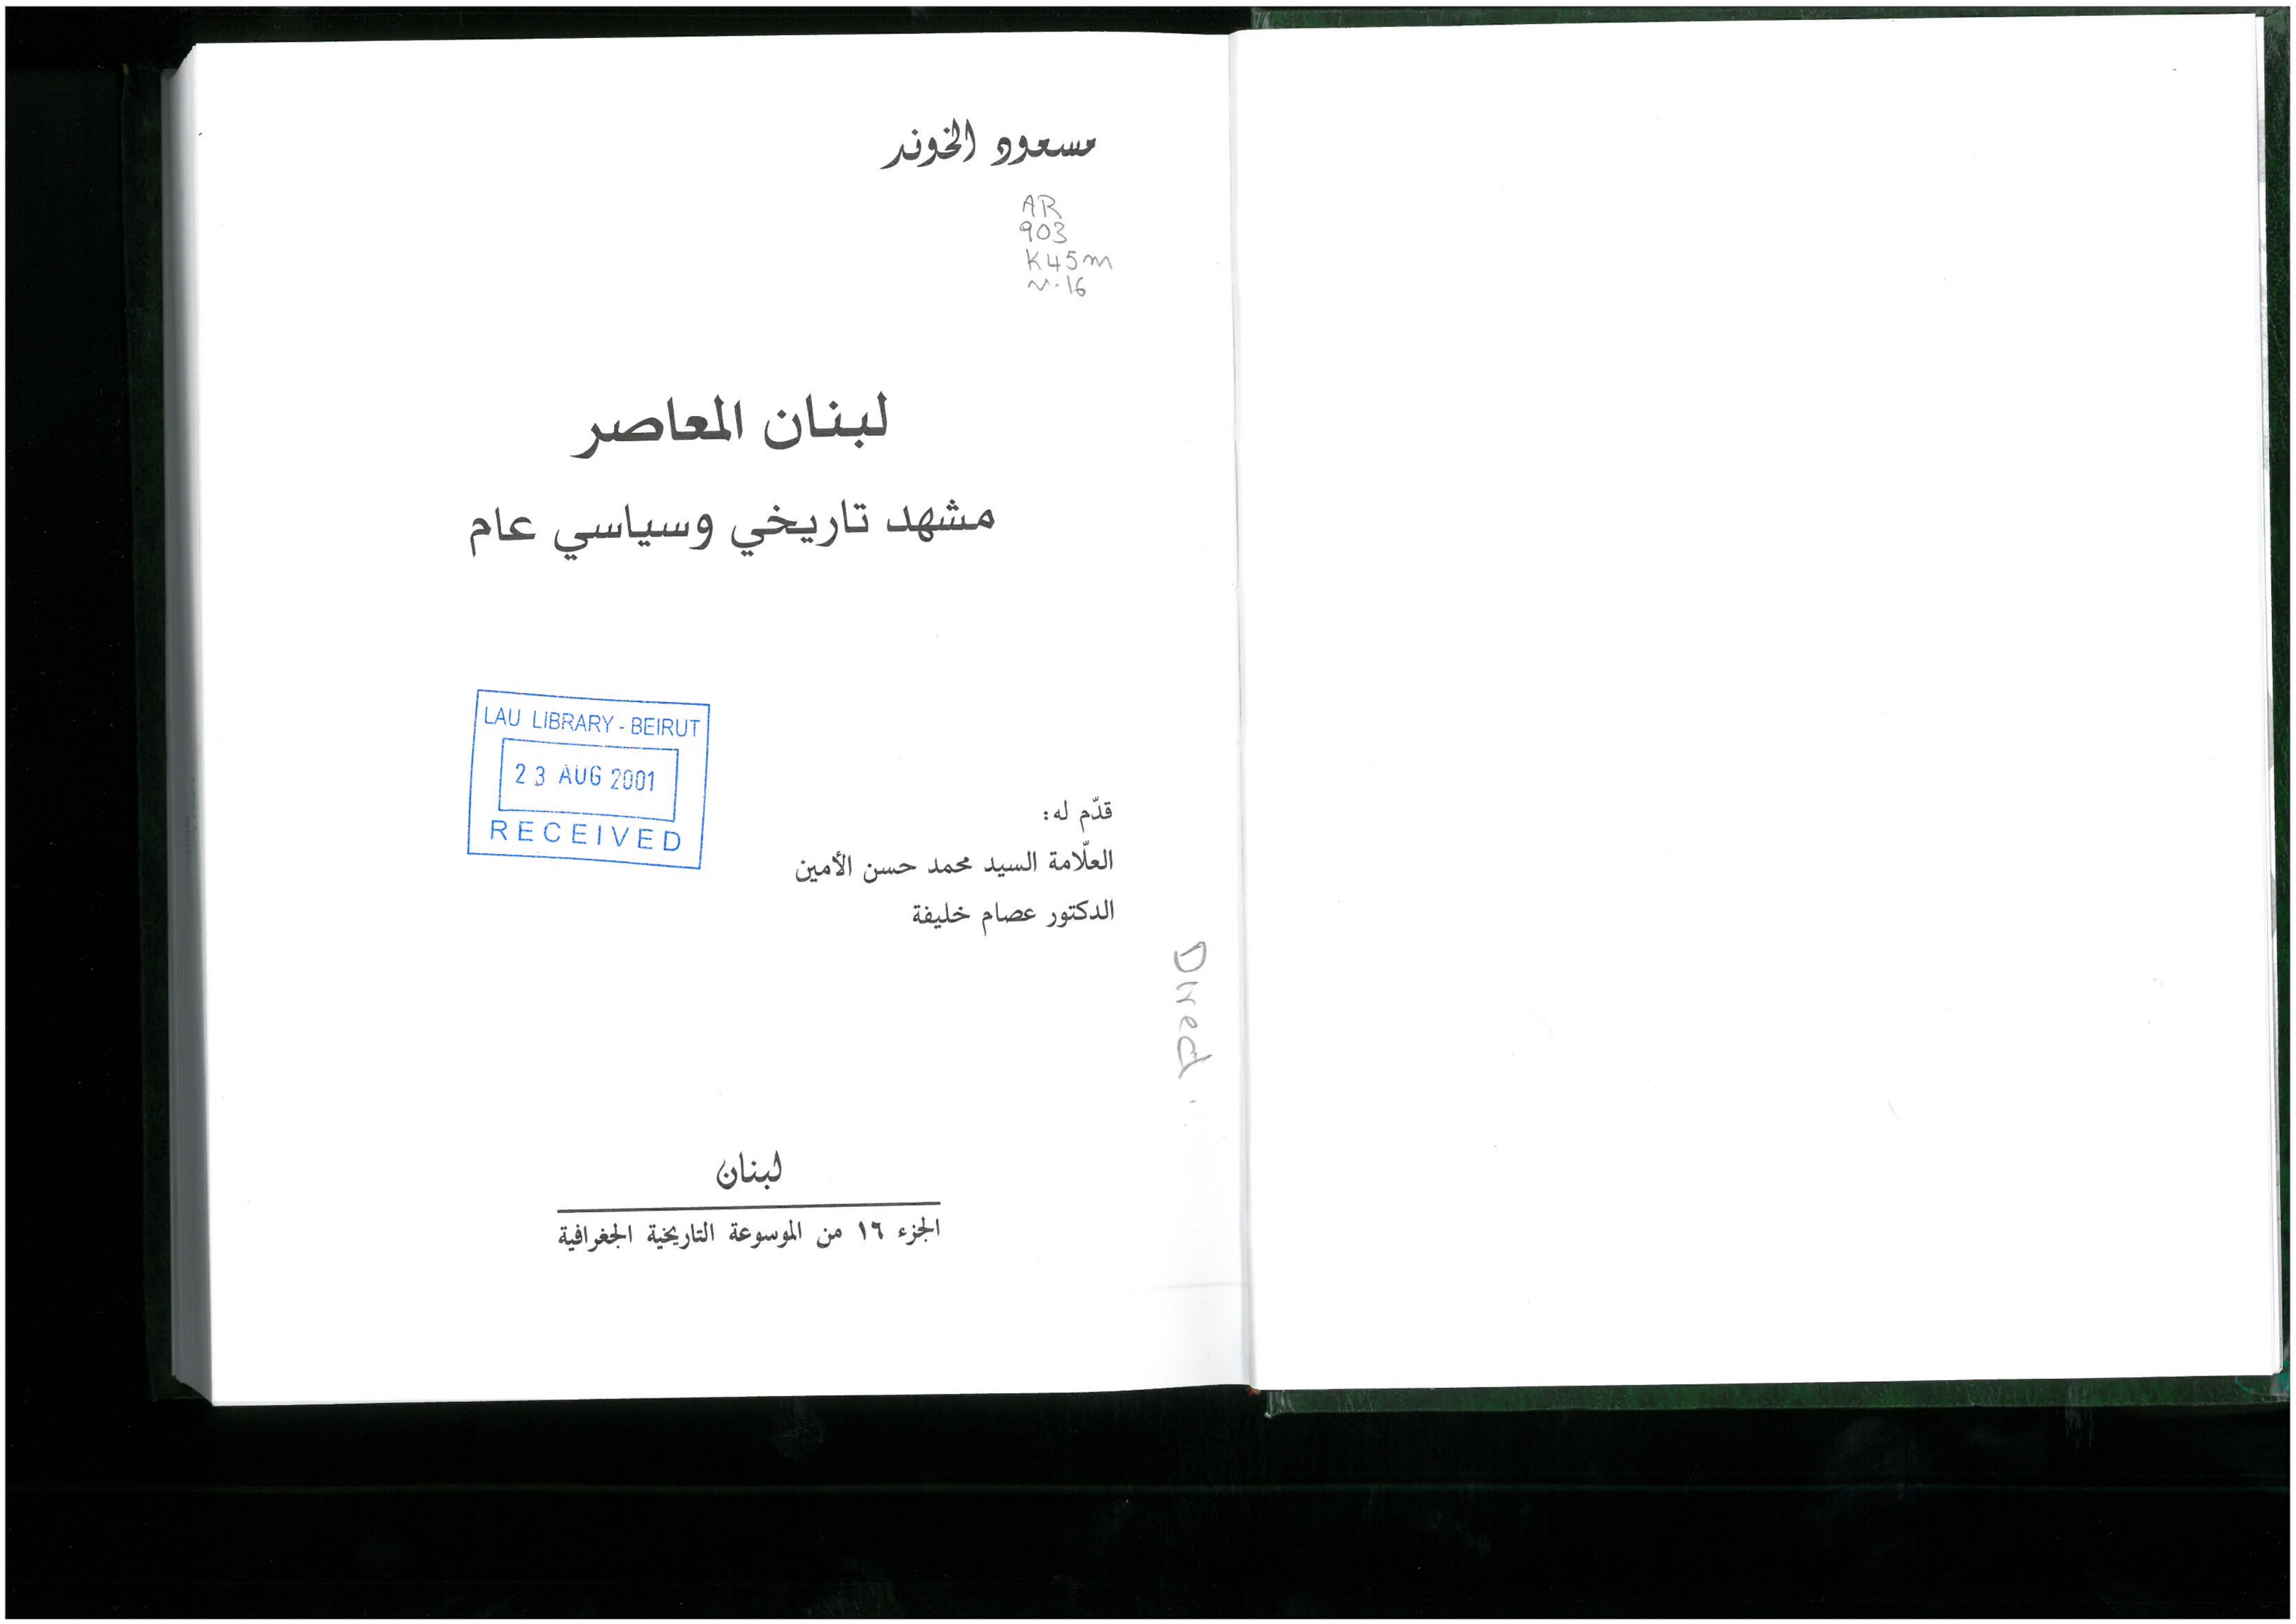 مسعود الخوند
AR
903
K45m
v.16
لبنان المعاصر
مشهد تاريخي وسياسي عام
LAU LIBRARY - BEIRUT
23 AUG 2001
RECEIVED
قدّم له:
العلّامة السيد محمد حسن الأمين
الدكتور عصام خليفة
Direct
لبنان
الجزء ١٦ من الموسوعة التاريخية الجغرافية